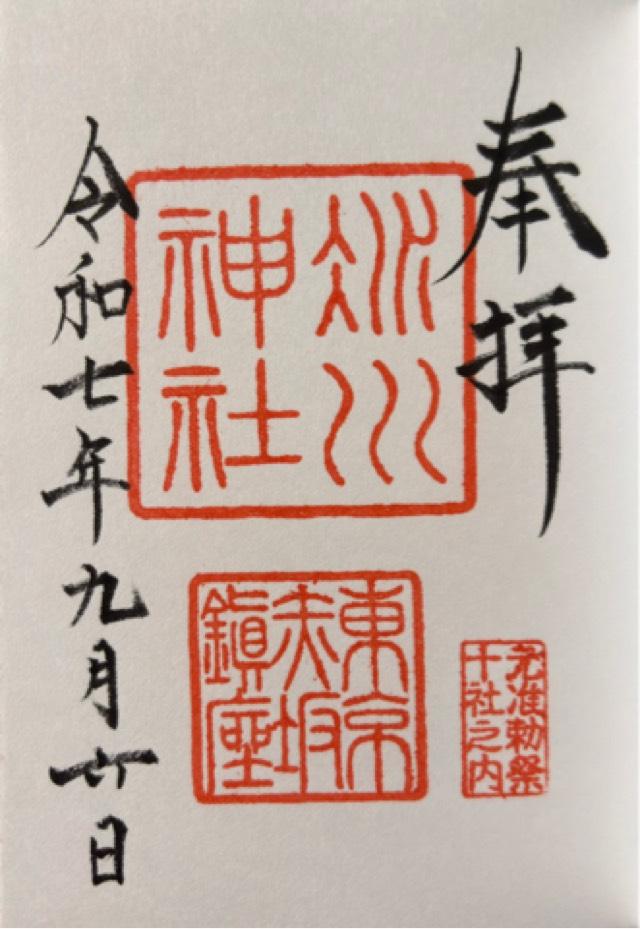 奉拝
氷川
神社
東京
赤坂
鎭座
元准勅祭
十社之内
令和七年九月六日